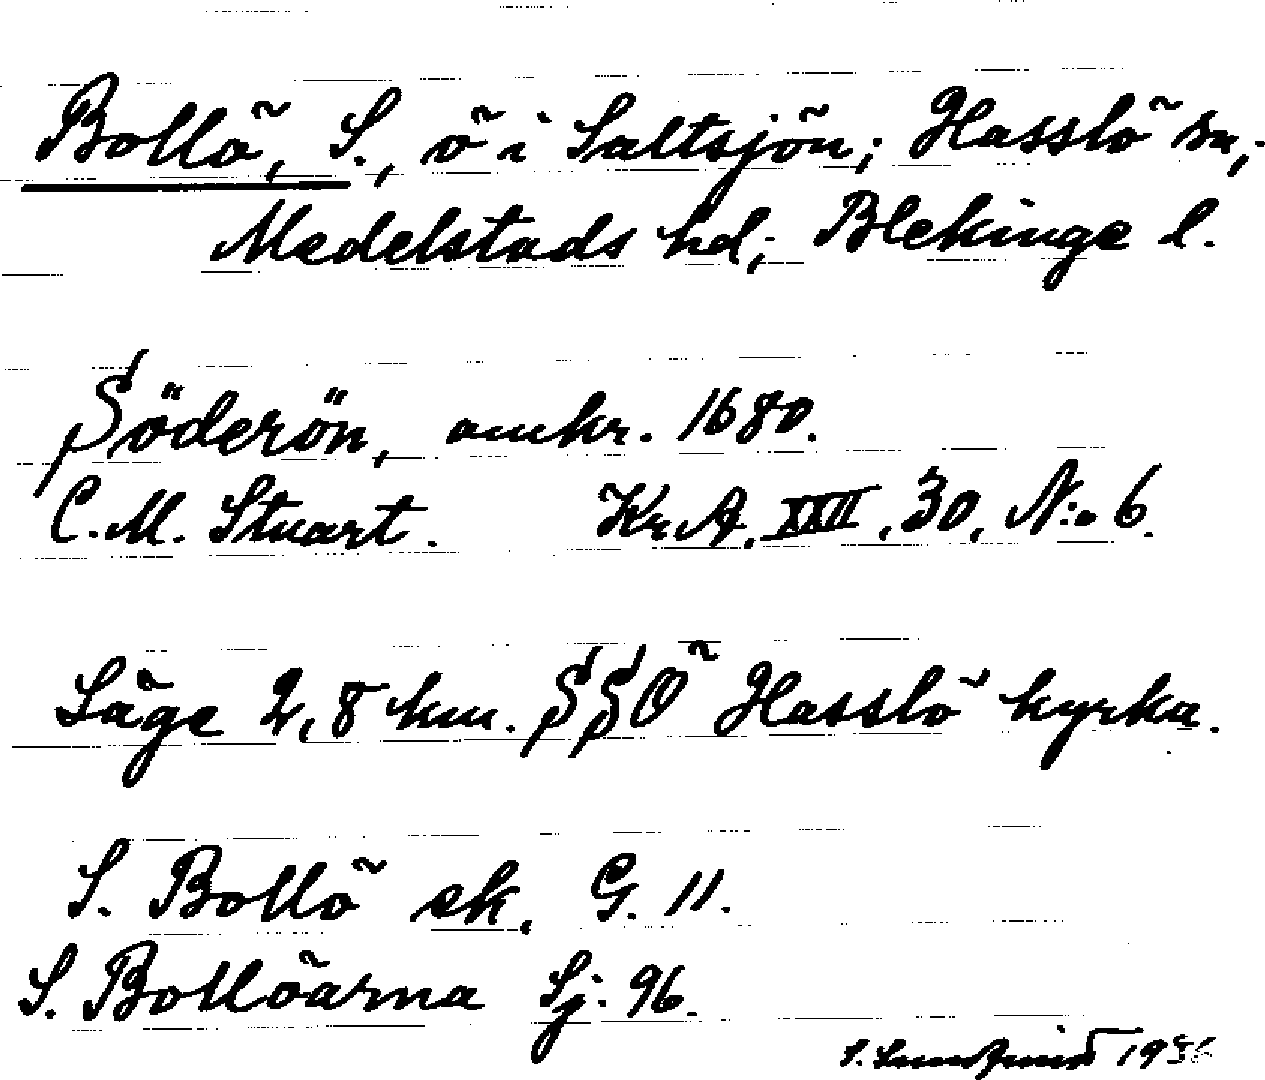 Bollö, S., ö i Saltsjön; Hasslö sn;
Medelstads hd; Blekinge l.
Söderön, omkr. 1680.
C. M. Stuart. Kr. A. XXII, 30, N:o 6.
Läge 2,8 km. SSO Hasslö kyrka.
S. Bollö ek. G. 11.
S. Bollöarna Sj. 96.